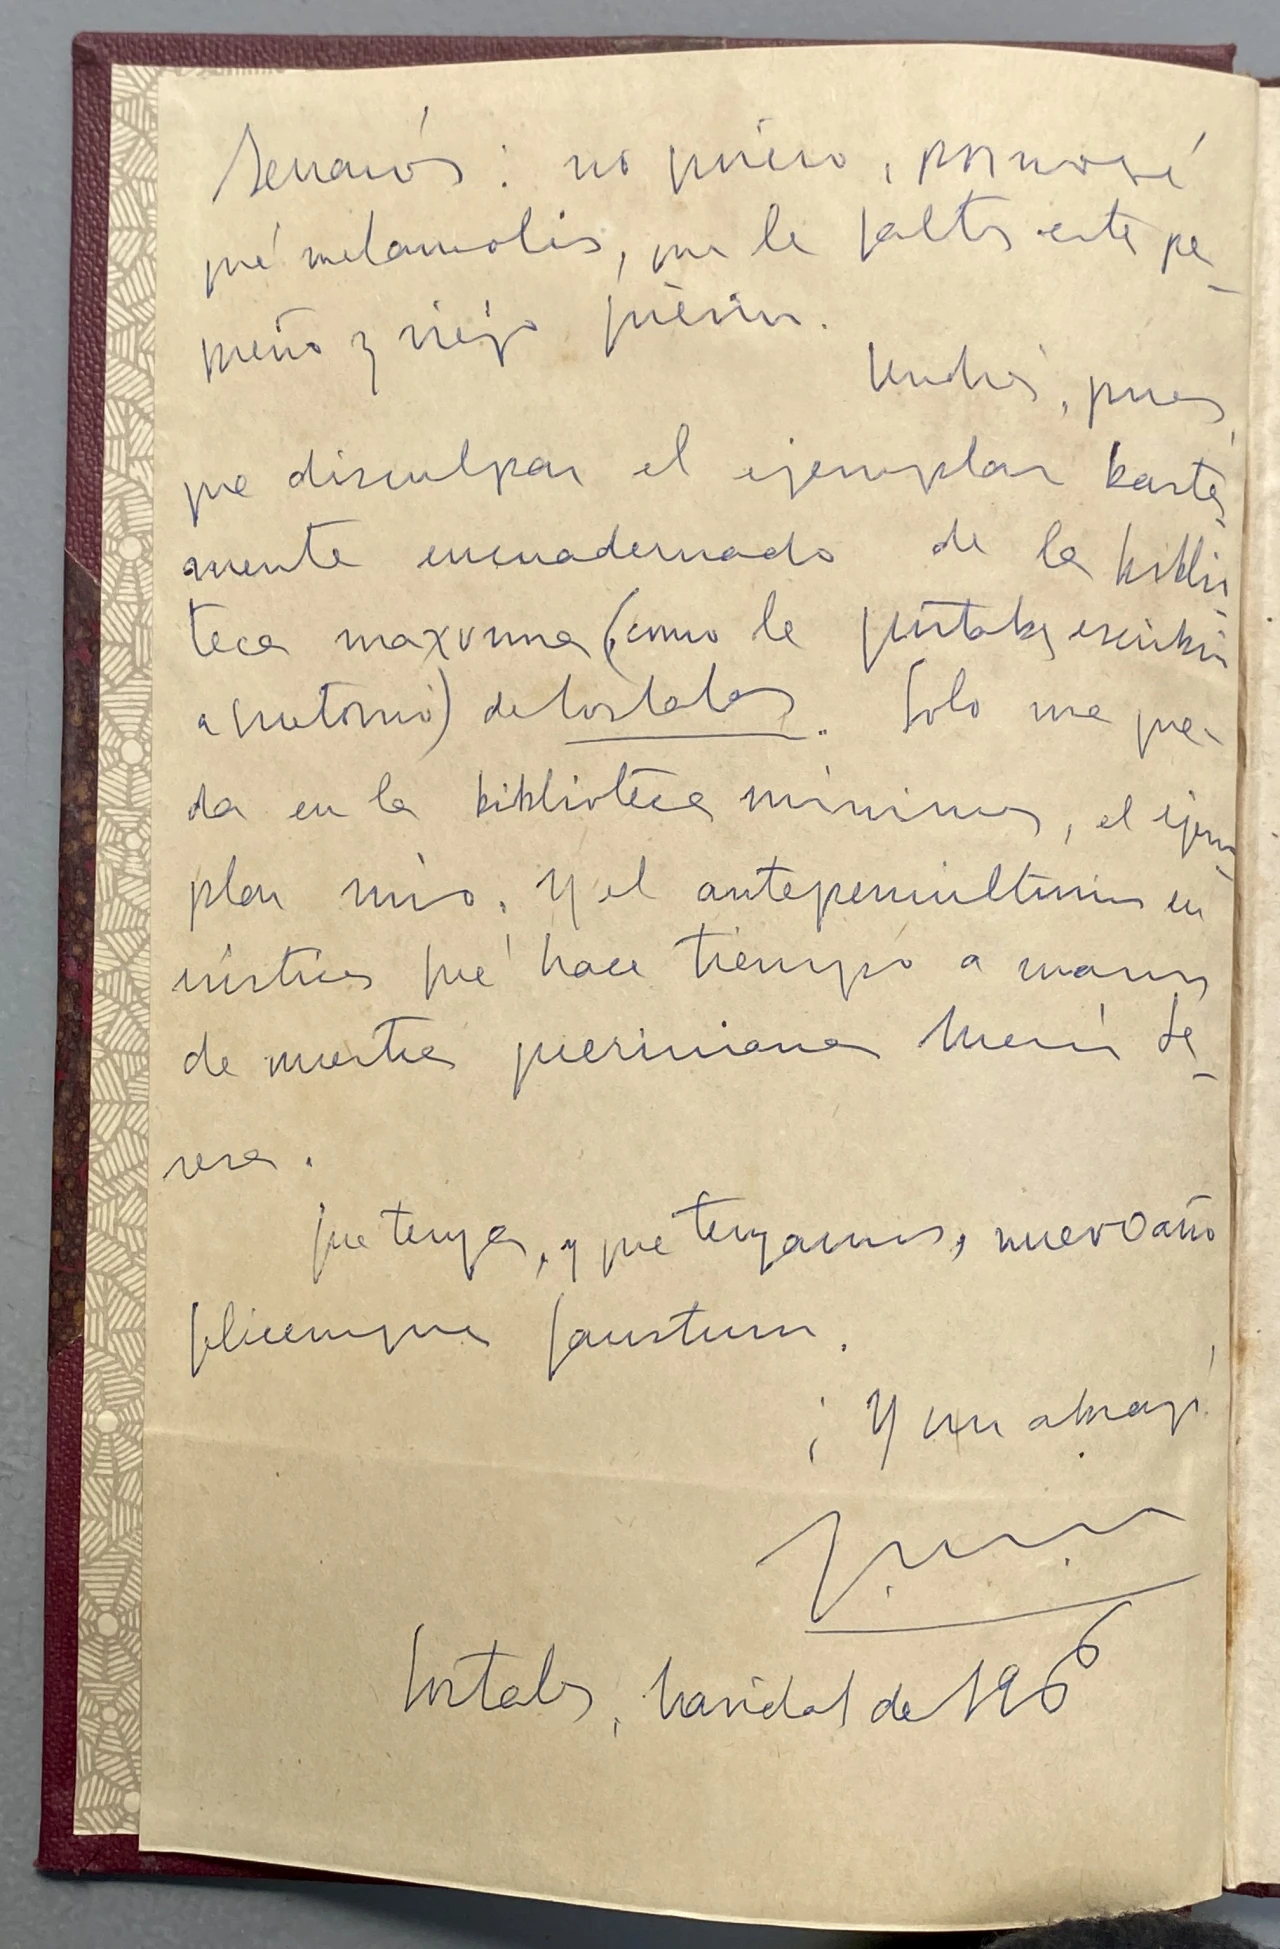 no quiero, por no sé
qué melancolía, que le falte este pe-
queño y viejo
Tendrá, pues,
que disculpar el ejemplar basta-
mente encuadernado de la biblio-
teca maxuma (como le gustaba escribir
a ) de Costales. Solo me que-
da en la biblioteca mínima, el ejem-
plar mío. Y el antepenúltimo en
rústica fué hace tiempo a manos
de nuestra
.
Que tenga, y que tengamos, nuevo año
felicemque faustum.
¡Y un abrazo!
Costales, Navidad de 1966